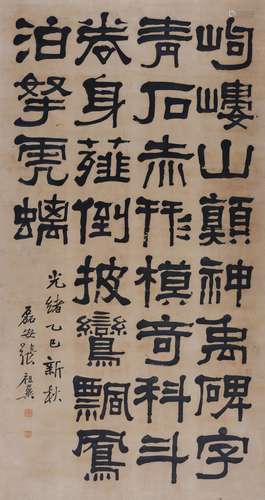 岣嶁山顛神禹碑字
青石赤形模奇科斗
拳身薤倒披鸞飄鳳
泊拏虎螭
光緒乙巳新秋
磊安張祖翼